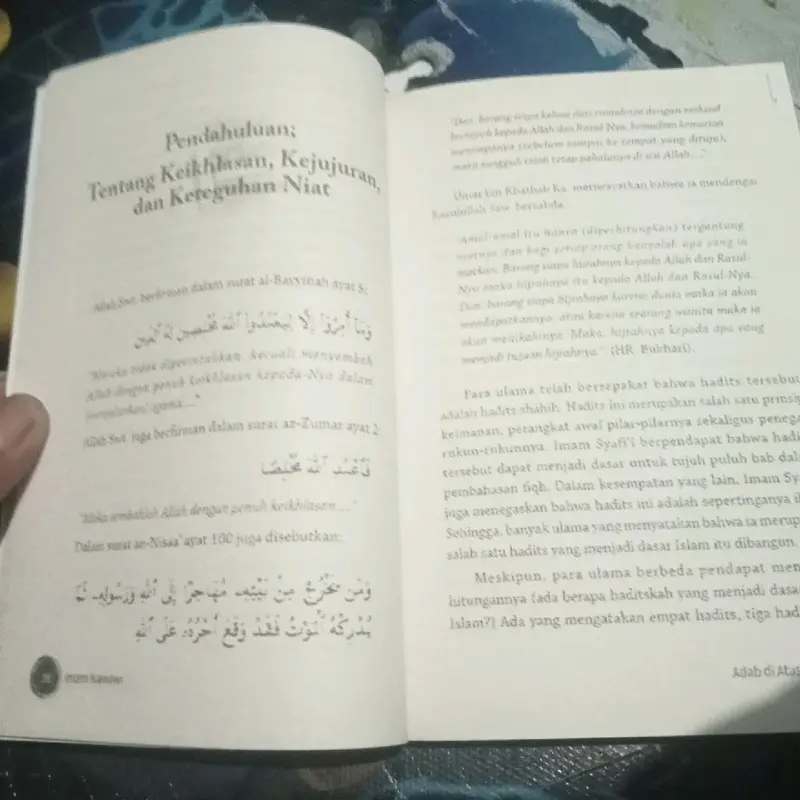 Pendahuluan;
Tentang Keikhlasan, Kejujuran,
dan Keteguhan Niat
Allah Swt. berfirman dalam surat al-Bayyinah ayat 5:
وَمَا أُمِرُوٓا۟ إِلَّا لِيَعْبُدُوا۟ ٱللَّهَ مُخْلِصِينَ لَهُ ٱلدِّينَ
"Mereka tidak diperintahkan, kecuali menyembah
Allah dengan penuh keikhlasan kepada-Nya dalam
(menjalankan) agama...."
Allah Swt. juga berfirman dalam surat az-Zumar ayat 2:
فَٱعْبُدِ ٱللَّهَ مُخْلِصًا
"Maka sembahlah Allah dengan penuh keikhlasan...."
Dalam surat an-Nisaa' ayat 100 juga disebutkan:
وَمَن يَخْرُجْ مِنۢ بَيْتِهِۦ مُهَاجِرًا إِلَى ٱللَّهِ وَرَسُولِهِۦ ثُمَّ
يُدْرِكْهُ ٱلْمَوْتُ فَقَدْ وَقَعَ أَجْرُهُۥ عَلَى ٱللَّهِ
Imam Nawawi
"Dan, barang siapa keluar dari rumahnya dengan maksud
berhijrah kepada Allah dan Rasul-Nya, kemudian kematian
menimpanya (sebelum sampai ke tempat yang dituju),
maka sungguh telah tetap pahalanya di sisi Allah...."
Umar bin Khathab Ra. meriwayatkan bahwa ia mendengar
Rasulullah Saw. bersabda
"Amal-amal itu hanya (diperhitungkan) tergantung
niatnya. Dan bagi setiap orang hanyalah apa yang ia
niatkan. Barang siapa hijrahnya kepada Allah dan Rasul-
Nya maka hijrahnya itu kepada Allah dan Rasul-Nya.
Dan, barang siapa hijrahnya karena dunia maka ia akan
mendapatkannya, atau karena seorang wanita maka ia
akan menikahinya. Maka, hijrahnya kepada apa yang
menjadi tujuan hijrahnya." (HR. Bukhari).
Para ulama telah bersepakat bahwa hadits tersebut
adalah hadits shahih. Hadits ini merupakan salah satu prinsip
keimanan, perangkat awal pilar-pilarnya sekaligus penega
rukun-rukunnya. Imam Syafi'i berpendapat bahwa hadi
tersebut dapat menjadi dasar untuk tujuh puluh bab dala
pembahasan fiqh. Dalam kesempatan yang lain, Imam Sya
juga menegaskan bahwa hadits ini adalah sepertinganya i
Sehingga, banyak ulama yang menyatakan bahwa ia merup
salah satu hadits yang menjadi dasar Islam itu dibangun.
Meskipun, para ulama berbeda pendapat men
hitungannya (ada berapa haditskah yang menjadi dasa
Islam?) Ada yang mengatakan empat hadits, tiga had
Adab di Atas